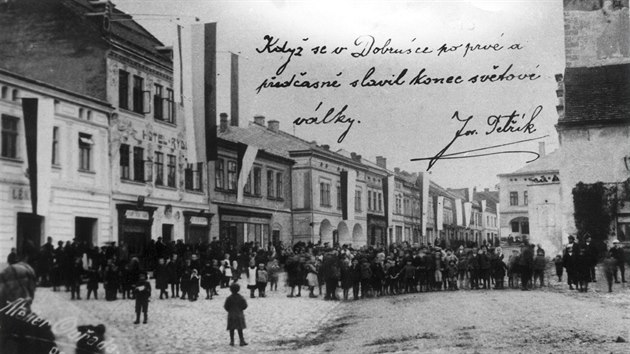 Když se v Dobrušce po prvé a
předčasně slavil konec světové
války.
Jos. Petřík
HOTEL RYDL